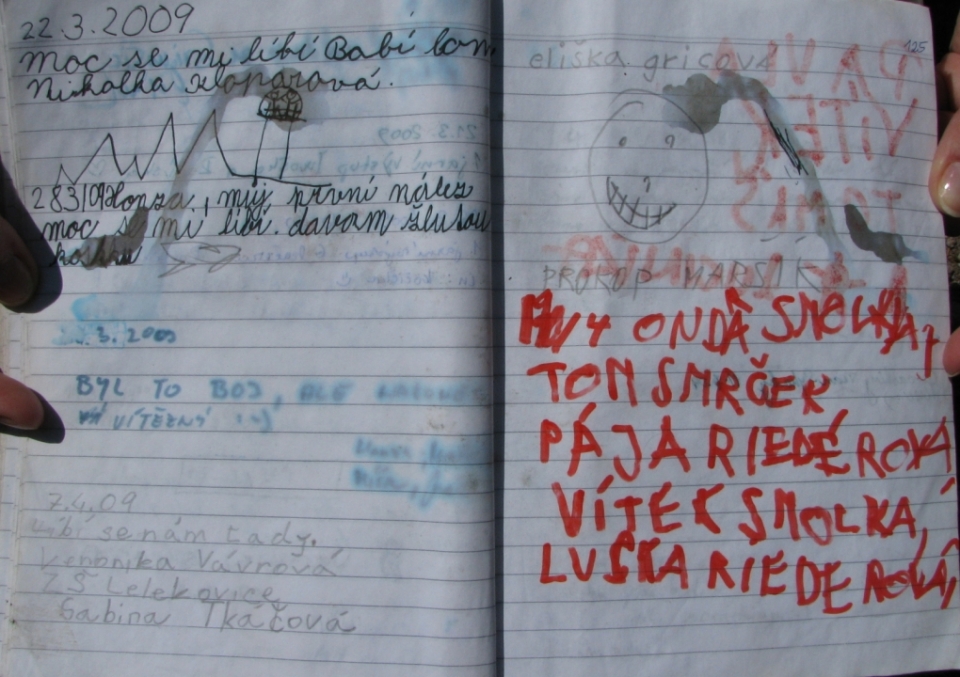 22.3.2009
Moc se mi líbí Babí lom
Nikolka
28.3.09 Honza, můj první nález
moc se mi líbí. davam žlutou
3. 2009
BYL TO BOJ, ALE NAKONEC
VÍTĚZNÝ :-)
7.4.09
Líbí se nám tady.
Veronika Vávrová
ZŠ Lelekovice
Gabina Tkáčová
125
eliška gricová
PROKOP MARŠÍK
ONDÂ SMOLKA,
TOM SMRČEK
PÁJA RIEDEROVÁ
VÍTEK SMOLKA,
LUŠKA RIEDEROVÁ,